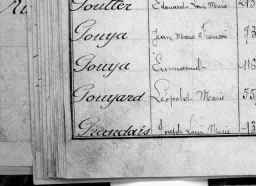 Goulter Edouard Louis Marie
Gouya Jean Marie François
Gouya Emmanuel
Gouyard Léopold Marie 55
Joseph Louis Marie